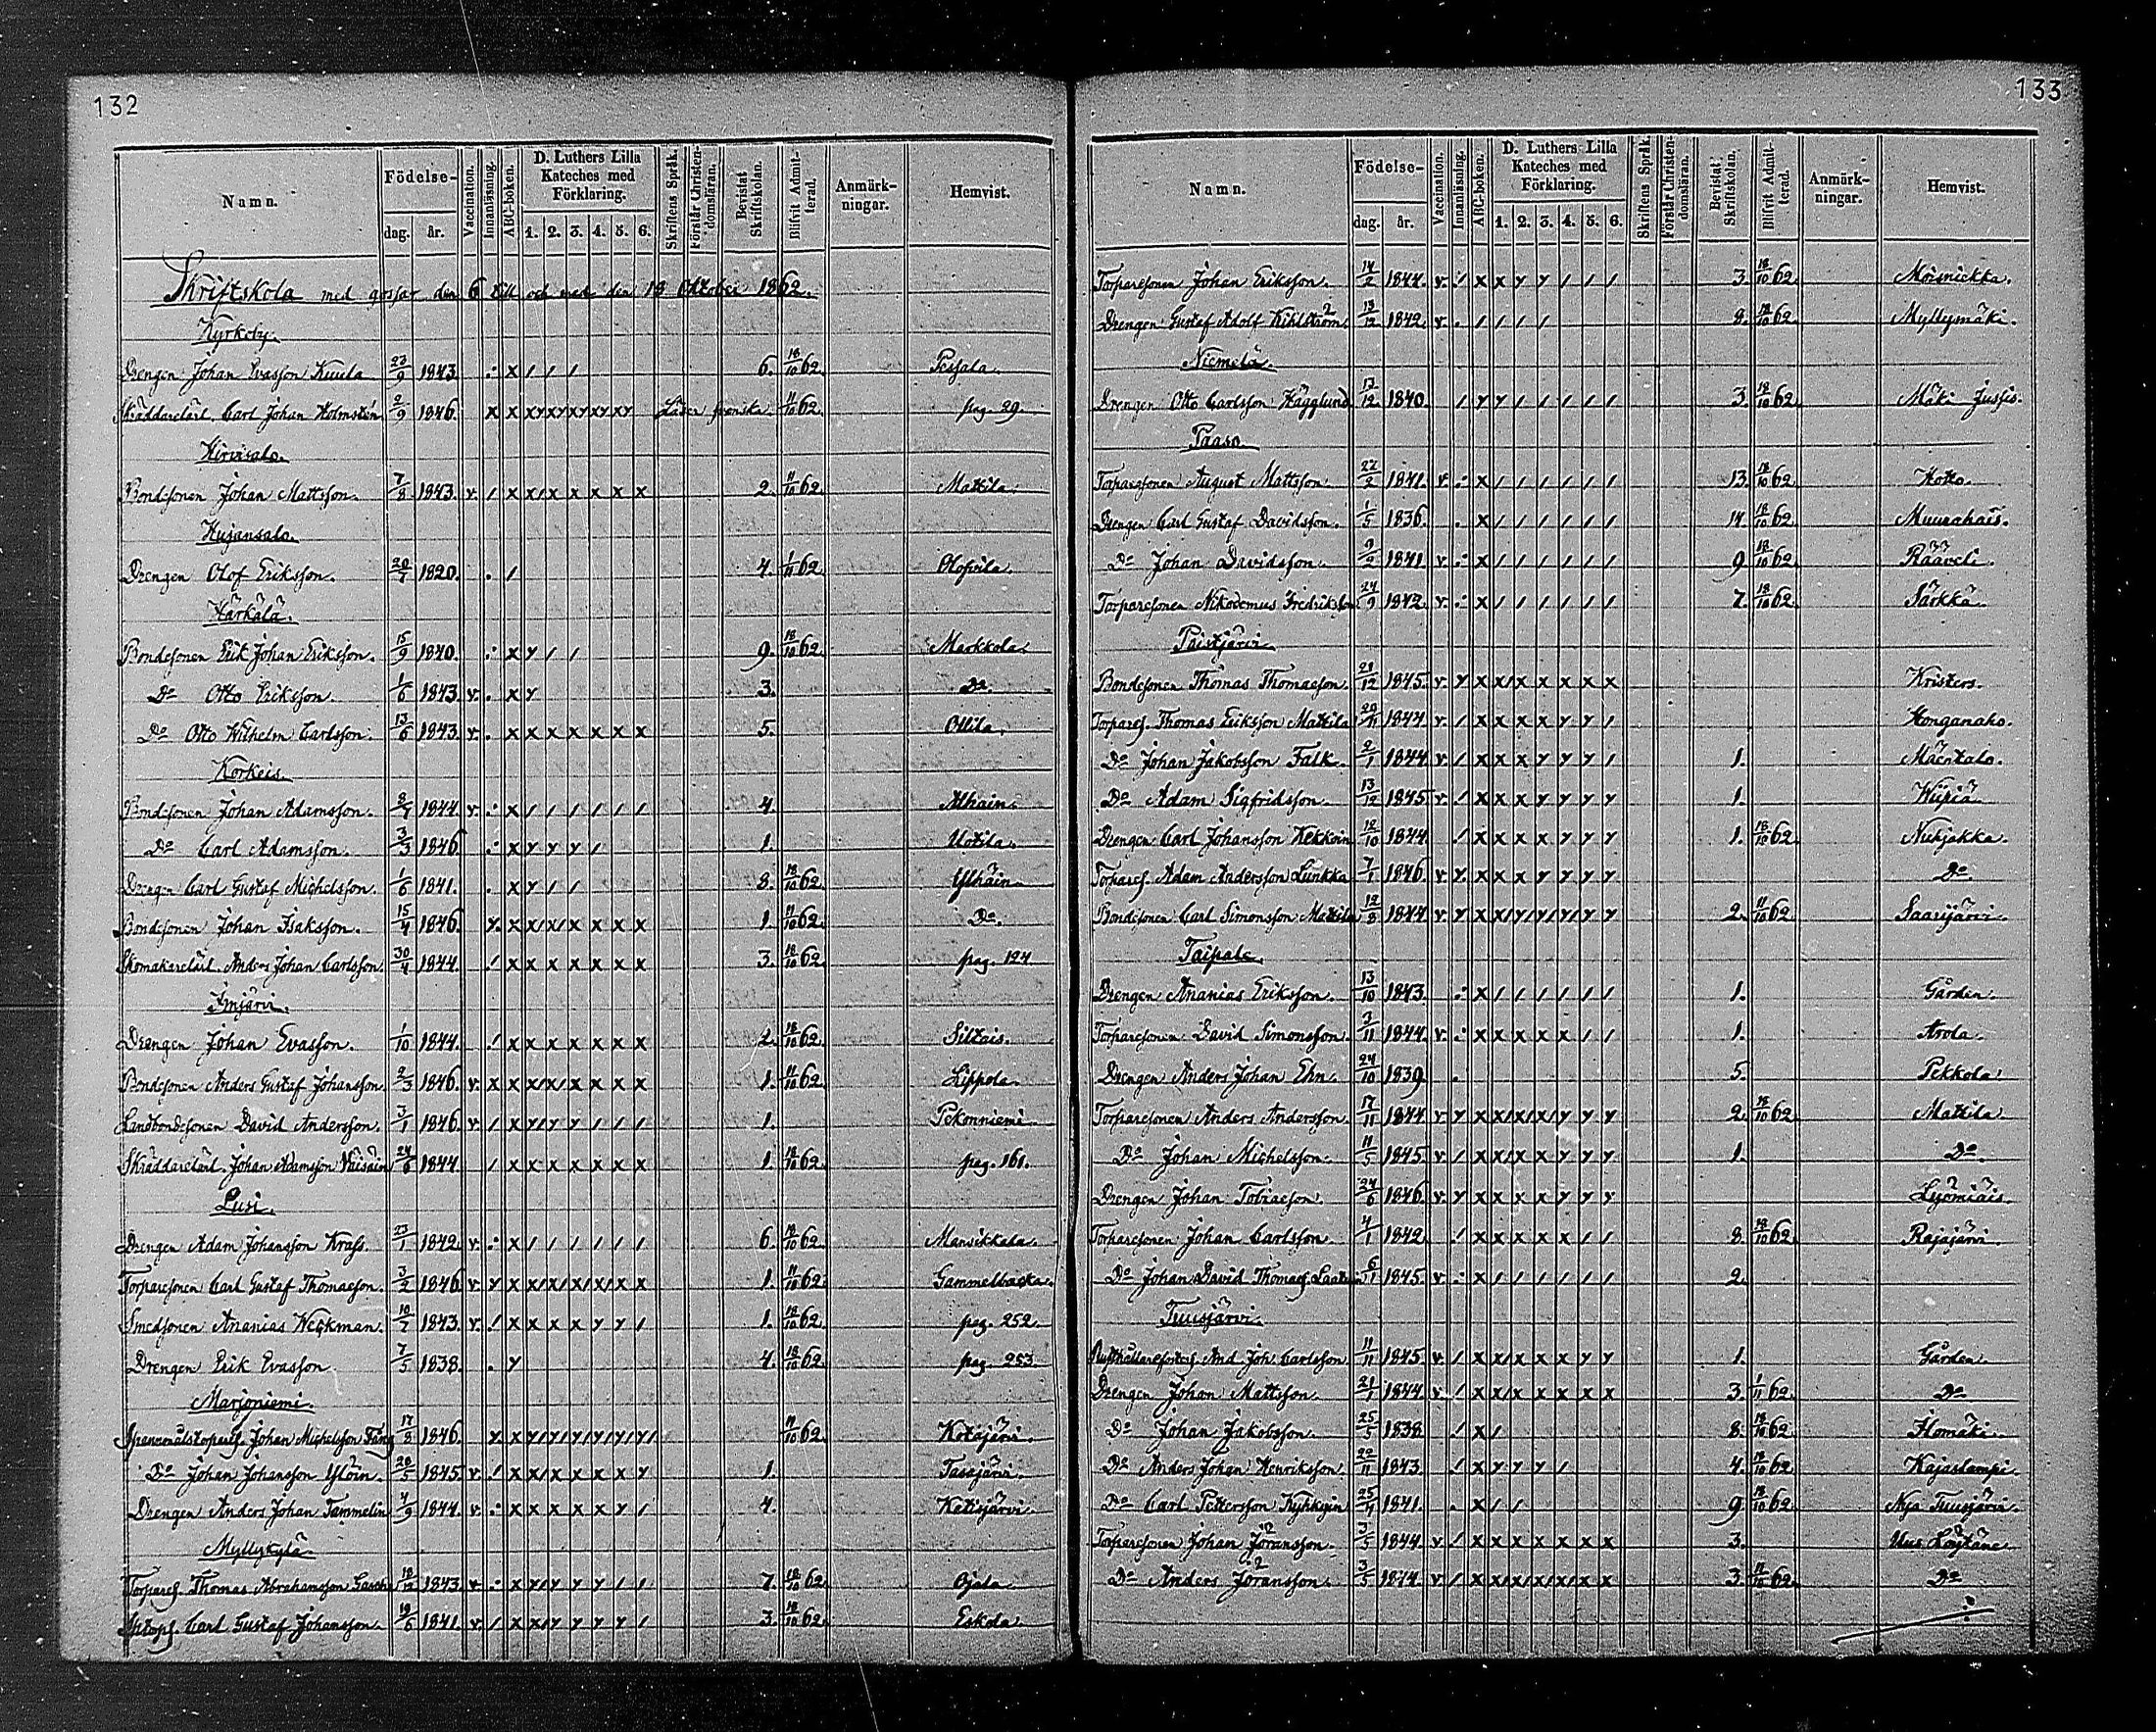 132
Namn. Födelse- dag. år. Vaccination. Innanläsning. ABC-boken. D. Luthers Lilla Kateches med Förklaring. 1. 2. 3. 4. 5. 6. Skriftens Språk. Förstår Christendomsläran. Bevistat Skriftskolan. Blifvit Admitterad. Anmärkningar. Hemvist.
Skriftskola med gossar den 6 till och med den 18 Oktober 1862.
Kyrkoby.
Drengen Johan Evasson Kuula 23/9 1843. .: x / / / 6. 18/10 62. Pessala.
Skräddarelärl. Carl Johan Holmstén 2/9 1846. x x xy xy xy xy xy Läser svenska. 11/10 62. pag. 29.
Hirvisalo.
Bondesonen Johan Mattsson. 7/8 1843. v. / x x/ x x x x x 2. 11/10 62. Mattila.
Hujansalo.
Drengen Olof Eriksson. 20/7 1820. . / 4. 1/11 62. Olofvila.
Härkälä.
Bondesonen Erik Johan Eriksson. 15/9 1840. .: x y / / 9. 18/10 62. Markkola.
Do Otto Eriksson. 1/6 1843 v. . x y 3. Do.
Do Otto Wilhelm Carlsson. 13/6 1843 v. . x x x x x x x 5. Ollila.
Korkeis.
Bondesonen Johan Adamsson. 8/7 1844 v. .: x / / / / / / 4. Alhain.
Do Carl Adamsson. 3/3 1846. .: x y y y / 1. Uotila.
Drengen Carl Gustaf Michelsson. 1/6 1841. . x y / / 8. 18/10 62. Ylhäin.
Bondesonen Johan Isaksson. 15/4 1846. y. x x/ x/ x x x x 1. 11/10 62. Do.
Skomakarelärl. Anders Johan Carlsson. 30/4 1844. ./ x x x x x x x 3. 18/10 62. pag. 124.
Imjärvi.
Drengen Johan Evasson. 1/10 1844. ./ x x x x x x x 2. 18/10 62. Siltais.
Bondesonen Anders Gustaf Johansson. 2/3 1846. v. x x x/ x/ x x x x 1. 11/10 62. Lippola.
Landbondesonen David Andersson. 3/1 1846. v. / x y/ y y / / / 1. Pekonniemi.
Skräddarelärl. Johan Adamsson Väisäin 24/6 1844. / x x x x x x x 1. 18/10 62. pag. 161.
Lusi.
Drengen Adam Johansson Krass. 23/1 1842. v. .: x / / / / / / 6. 18/10 62. Manvikkala.
Torparesonen Carl Gustaf Thomasson. 3/2 1846. v. y x x/ x/ x/ x/ x x 1. 11/10 62. Gammelbacka.
Smedsonen Ananias Weckman. 10/7 1843. v. ./ x x x x y y / 1. 18/10 62. pag. 252.
Drengen Erik Evasson. 7/5 1838. . y 4. 18/10 62. pag. 253.
Marjoniemi.
Johan Michelsson Färg 17/8 1846. y. x y/ y/ y/ y/ y/ y/ 11/10 62. Kotajärvi.
Do Johan Johansson Ylöin. 20/5 1845 v. ./ x x/ x x x x y 1. Tasajärvi.
Drengen Anders Johan Tammelin 4/9 1844. v. .: x x x x x y / 4. Ketisjärvi.
Myllykylä.
Torpares. Thomas Abrahamsson 18/12 1843. v. .: x y/ y y y / / 7. 18/10 62. Ojala.
Carl Gustaf Johansson. 19/6 1841. v. / x x/ y y y y / 3. 18/10 62. Eskola.
133
Namn. Födelse- dag. år. Vaccination. Innanläsning. ABC-boken. D. Luthers Lilla Kateches med Förklaring. 1. 2. 3. 4. 5. 6. Skriftens Språk. Förstår Christendomsläran. Bevistat Skriftskolan. Blifvit Admitterad. Anmärkningar. Hemvist.
Torparesonen Johan Eriksson. 14/2 1844. v. ./ x x y y / / / 3. 18/10 62. Moisniekka.
Drengen Gustaf Adolf Kihlström. 13/12 1842. v. . / / / / 8. 18/10 62. Myllymäki.
Niemelä.
Drengen Otto Carlsson Hägglund. 13/12 1840. / y y / / / / / 3. 18/10 62. Mäki Jussis.
Paaso.
Torparesonen August Mattsson. 22/2 1841. v. .: x / / / / / / 13. 18/10 62. Kotto.
Drengen Carl Gustaf Davidsson. 1/5 1836. . x / / / / / / 14. 18/10 62. Muurahais.
Do Johan Davidsson. 9/2 1841. v. .: x / / / / / / 9. 18/10 62. Rääveli.
Torparesonen Nikodemus Fredriksson 24/9 1842. v. .: x / / / / / / 7. 18/10 62. Särkkä.
Paistjärvi.
Bondesonen Thomas Thomasson. 21/12 1845. v. y x x/ x x x x x Kristers.
Torpares. Thomas Eriksson Mattila 20/11 1844. v. / x x x x y y / Honganaho.
Do Johan Jakobsson Falk. 2/1 1844 v. / x x x y y y / 1. Mäentalo.
Do Adam Sigfridsson. 13/12 1845 v. ./ x x x y y y y 1. Wiipiä.
Drengen Carl Johansson Kekkoin 18/10 1844. ./ x x x x y y y 1. 18/10 62. Nuhjakka.
Torpares. Adam Andersson Lunkka 7/1 1846. v. y. x x x y y y y Do
Bondesonen Carl Simonsson Mattila 12/8 1844 v. y x x/ y/ y/ y/ y y 2. 11/10 62. Saarijärvi.
Taipale.
Drengen Ananias Eriksson. 13/10 1843. .: x / / / / / / 1. Gården.
Torparesonen David Simonsson. 3/11 1844. v. .: x x x x x / / 1. Arola.
Drengen Anders Johan Ehn. 24/10 1839. . 5. Pekkola.
Torparesonen Anders Andersson. 17/11 1844. v. y x x/ x/ x/ y y y 2. 18/10 62. Mattila.
Do Johan Michelsson. 11/5 1845. v. / x x/ x x y y y 1. Do.
Drengen Johan Tobiasson. 24/6 1846. v. y x x x x y y y Lyömiäis.
Torparesonen Johan Carlsson. 4/1 1842. ./ x x x x x / / 8. 18/10 62. Rajajärvi.
Do Johan David Thomass. 6/1 1845. v. .: x / / / / / / 2.
Tuusjärvi.
And. Joh. Carlsson. 11/11 1845. v. / x x/ x x x y y 1. Gården.
Drengen Johan Mattsson. 21/1 1844. v. ./ x x/ x x x x x 3. 1/11 62. Do
Do Johan Jakobsson. 25/5 1838. ./ x / 8. 18/10 62. Ilomäki.
Do Anders Johan Henriksson. 22/11 1843. ./ x y y y / 4. 18/10 62. Kajaslampi.
Do Carl Pettersson Kyhkyin 25/4 1841. . x / / 9. 18/10 62. Nya Tuusjärvi.
Torparesonen Johan Jöransson. 3/5 1844. v. ./ x x x x x x x 3. Uus Löytäne.
Do Anders Jöransson. 3/5 1844. v. / x x/ x/ x/ x/ x x 3. 11/10 62. Do